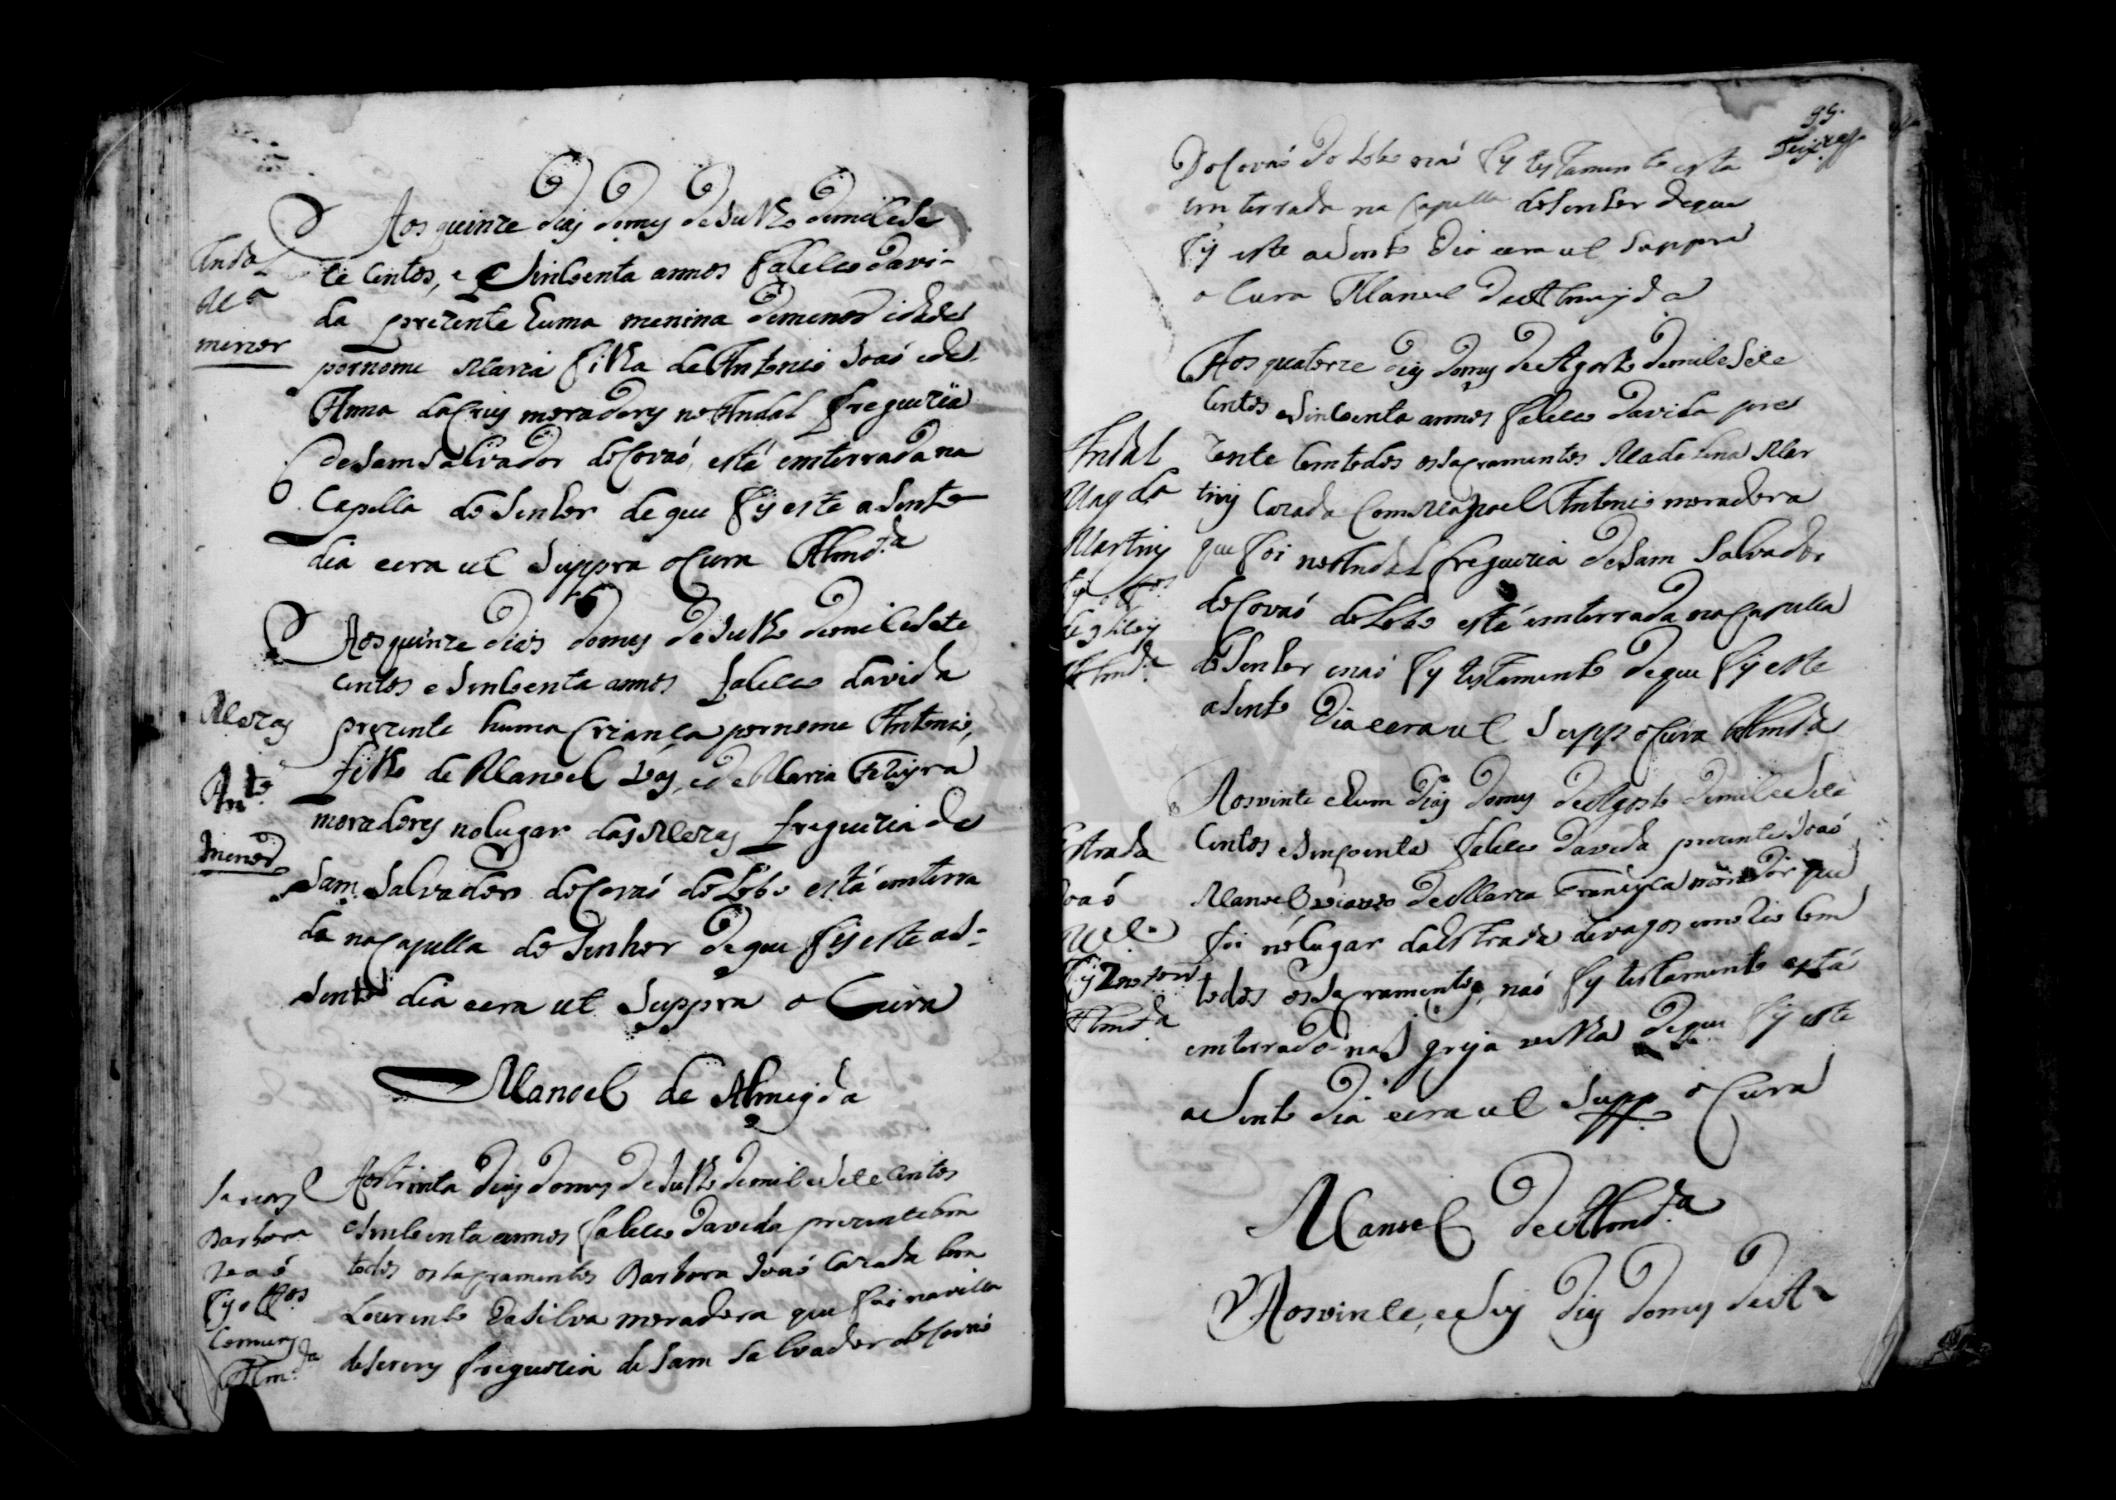 Andal
Mª
menor
Aos quinze dias do mes de Julho de mil e se
te centos, e sincoenta annos faleceo da vi-
da prezente huma menina de menor idade
por nome Maria filha de Antonio Joaó e de
Anna da Crus moradores no Andal freguezia
de Sam Salvador do Covaó, está emterrada na
Capella do Senhor de que fis este asento
dia e era ut suppra o Cura Almdª
Mezas
Antº
menor
Aos quinze dias do mes de Julho de mil e sete
centos e sincoenta annos faleceo da vida
prezente huma criança por nome Antonio,
filho de Manoel Vas, e de Maria Ferreyra
moradores no lugar das Mezas freguezia de
Sam Salvador do Covaó do Lobo está emterra
da na Capella do Senhor de que fis este as-
sento dia e era ut suppra o Cura
Manoel de Almeyda
Barbora
Joaó
fis offos
Almdª
Aos trinta dias do mes de Julho de mil e sete centos
e sincoenta annos faleceo da vida prezente com
todos os sacramentos Barbora Joaó cazada com
Lourenco da Silva moradora que foi na villa
de Sorens freguezia de Sam Salvador do Covaó
99.
do Covaó do Lobo naó fes testamento esta
emterrada na Capella do Senhor de que
fis este asento dia e era ut suppra
o Cura Manoel de Almeyda
Andal
Magdª
Martins
Almdª
Aos quatorze dias do mes de Agosto de mil e sete
centos e sincoenta annos faleceo da vida pre
zente com todos os sacramentos Madalena Mar
tins cazada com Manoel Antonio moradora
que foi no Andal freguezia de Sam Salvador
do Covaó do Lobo está emterrada na Capella
do Senhor e naó fes testamento de que fis este
asento dia e era ut supp o Cura Almdª
Estrada
Joaó
Mel
Almdª
Aos vinte e hum dias do mes de Agosto de mil e sete
centos e sincoenta faleceo da vida prezente Joaó
Manoel viuvo de Maria Francisca morador que
foi no lugar da Estrada de vagos com
todos os sacramentos, naó fes testamento está
emterrado na Igreja velha de que fis este
asento dia e era ut supp o Cura
Manoel de Almdª
Aos vinte, e seis dias do mes de A-